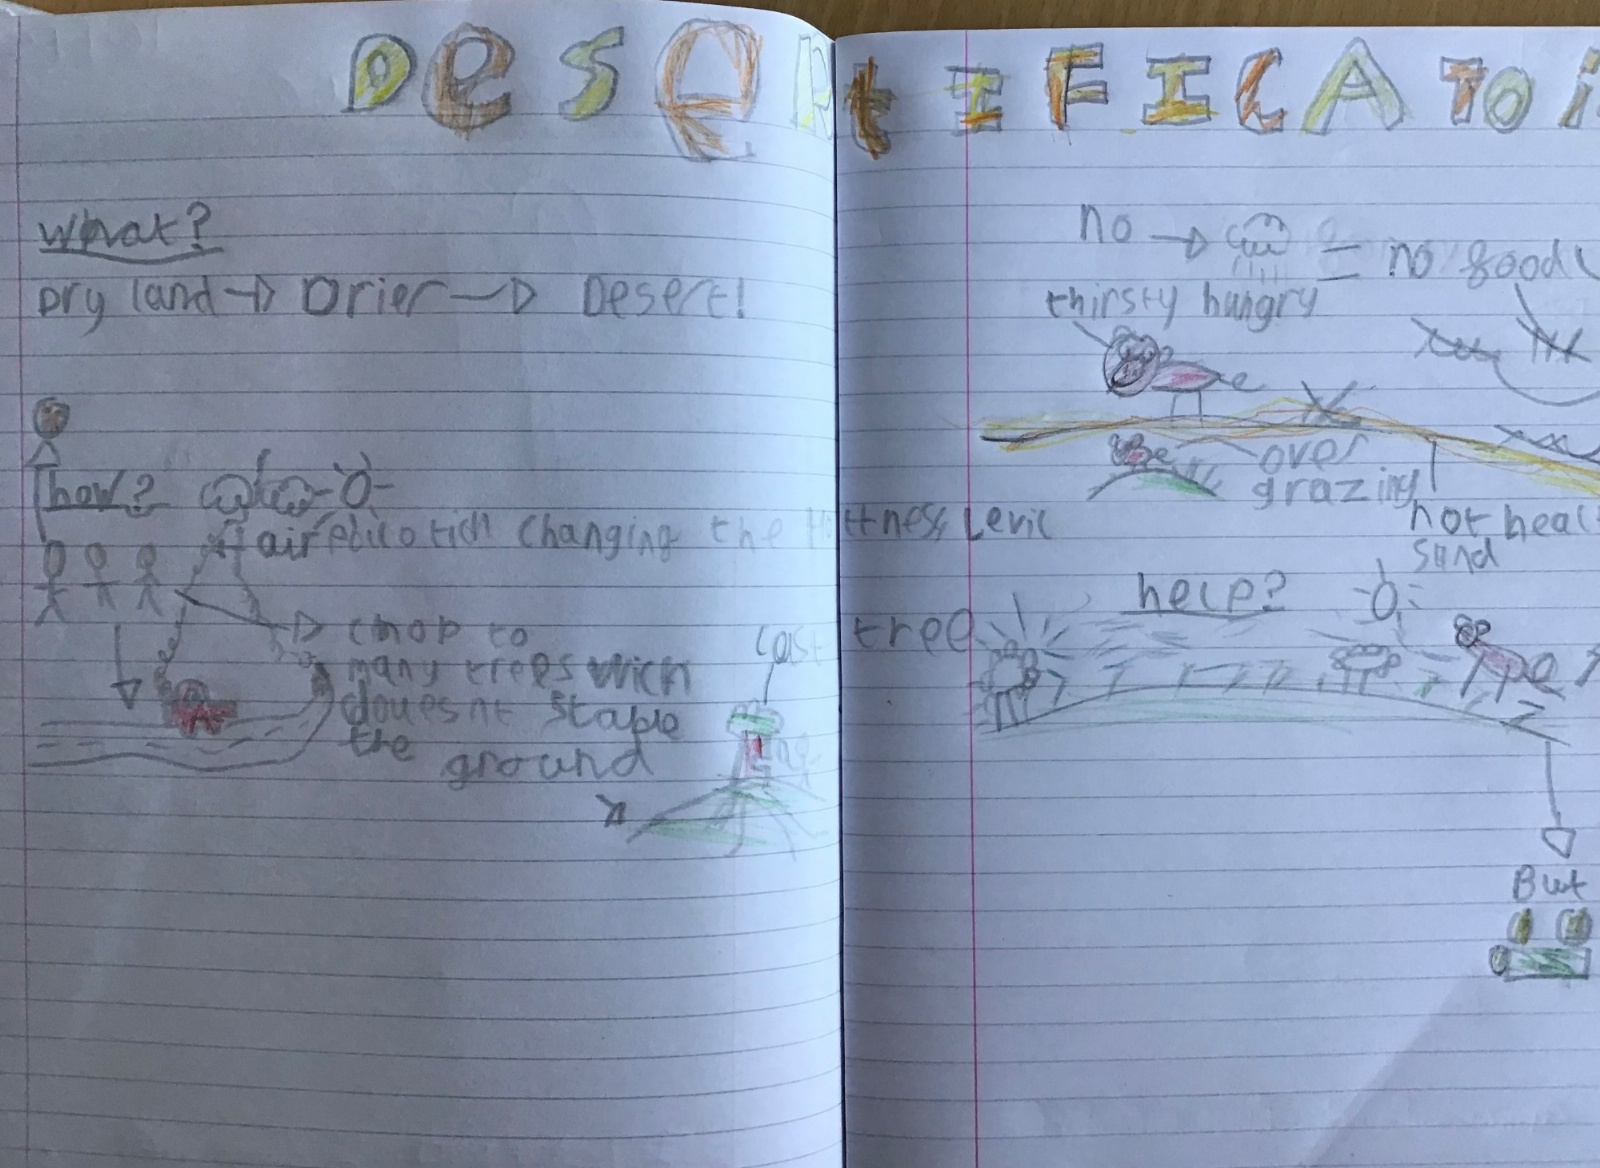 DESERtIFICATOi
what?
Dry land → Drier → Desert!
how?
air changing the Levil
chop to
many trees wich
douesnt stable
the ground
last tree
no → = no food
thirsty hungry
over
grazing
not heal
sand
help?
But